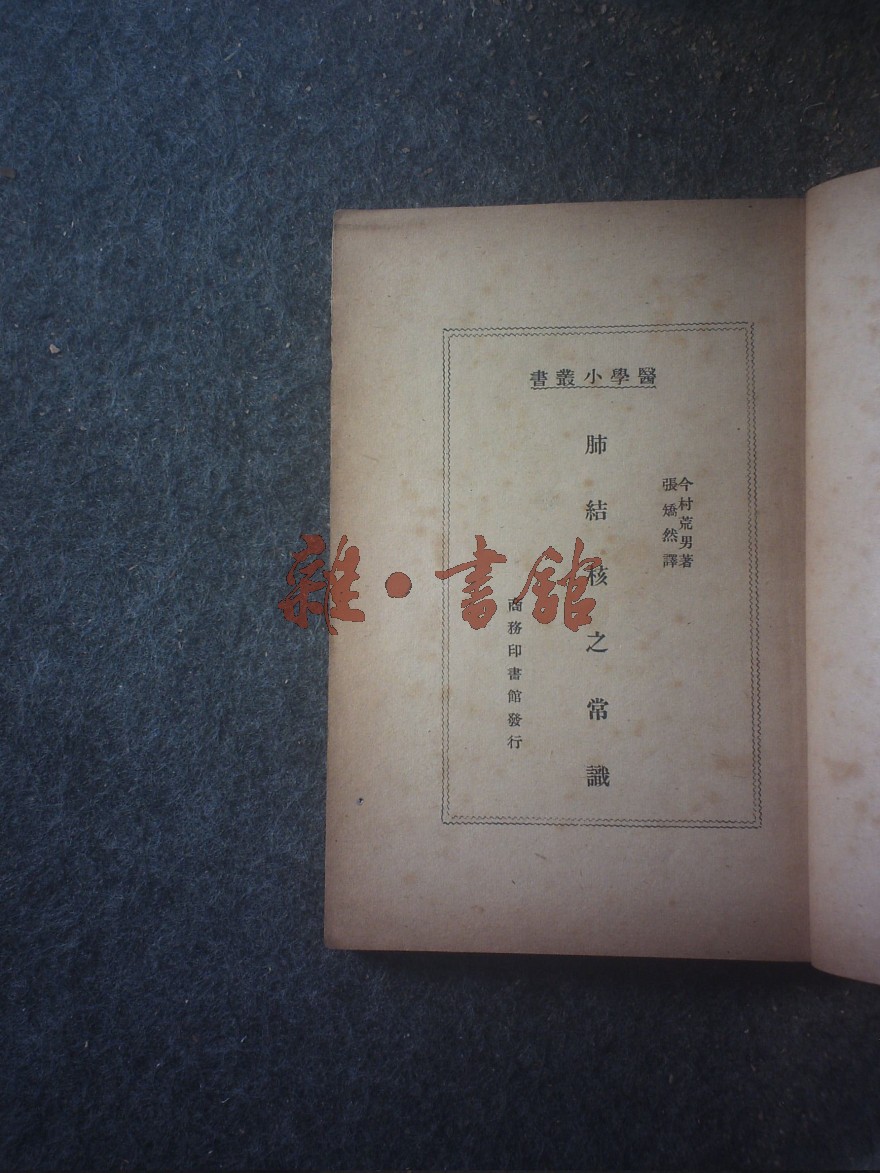 醫學小叢書
今村荒男著
張矯然譯
肺結核之常識
商務印書館發行
雜·書館